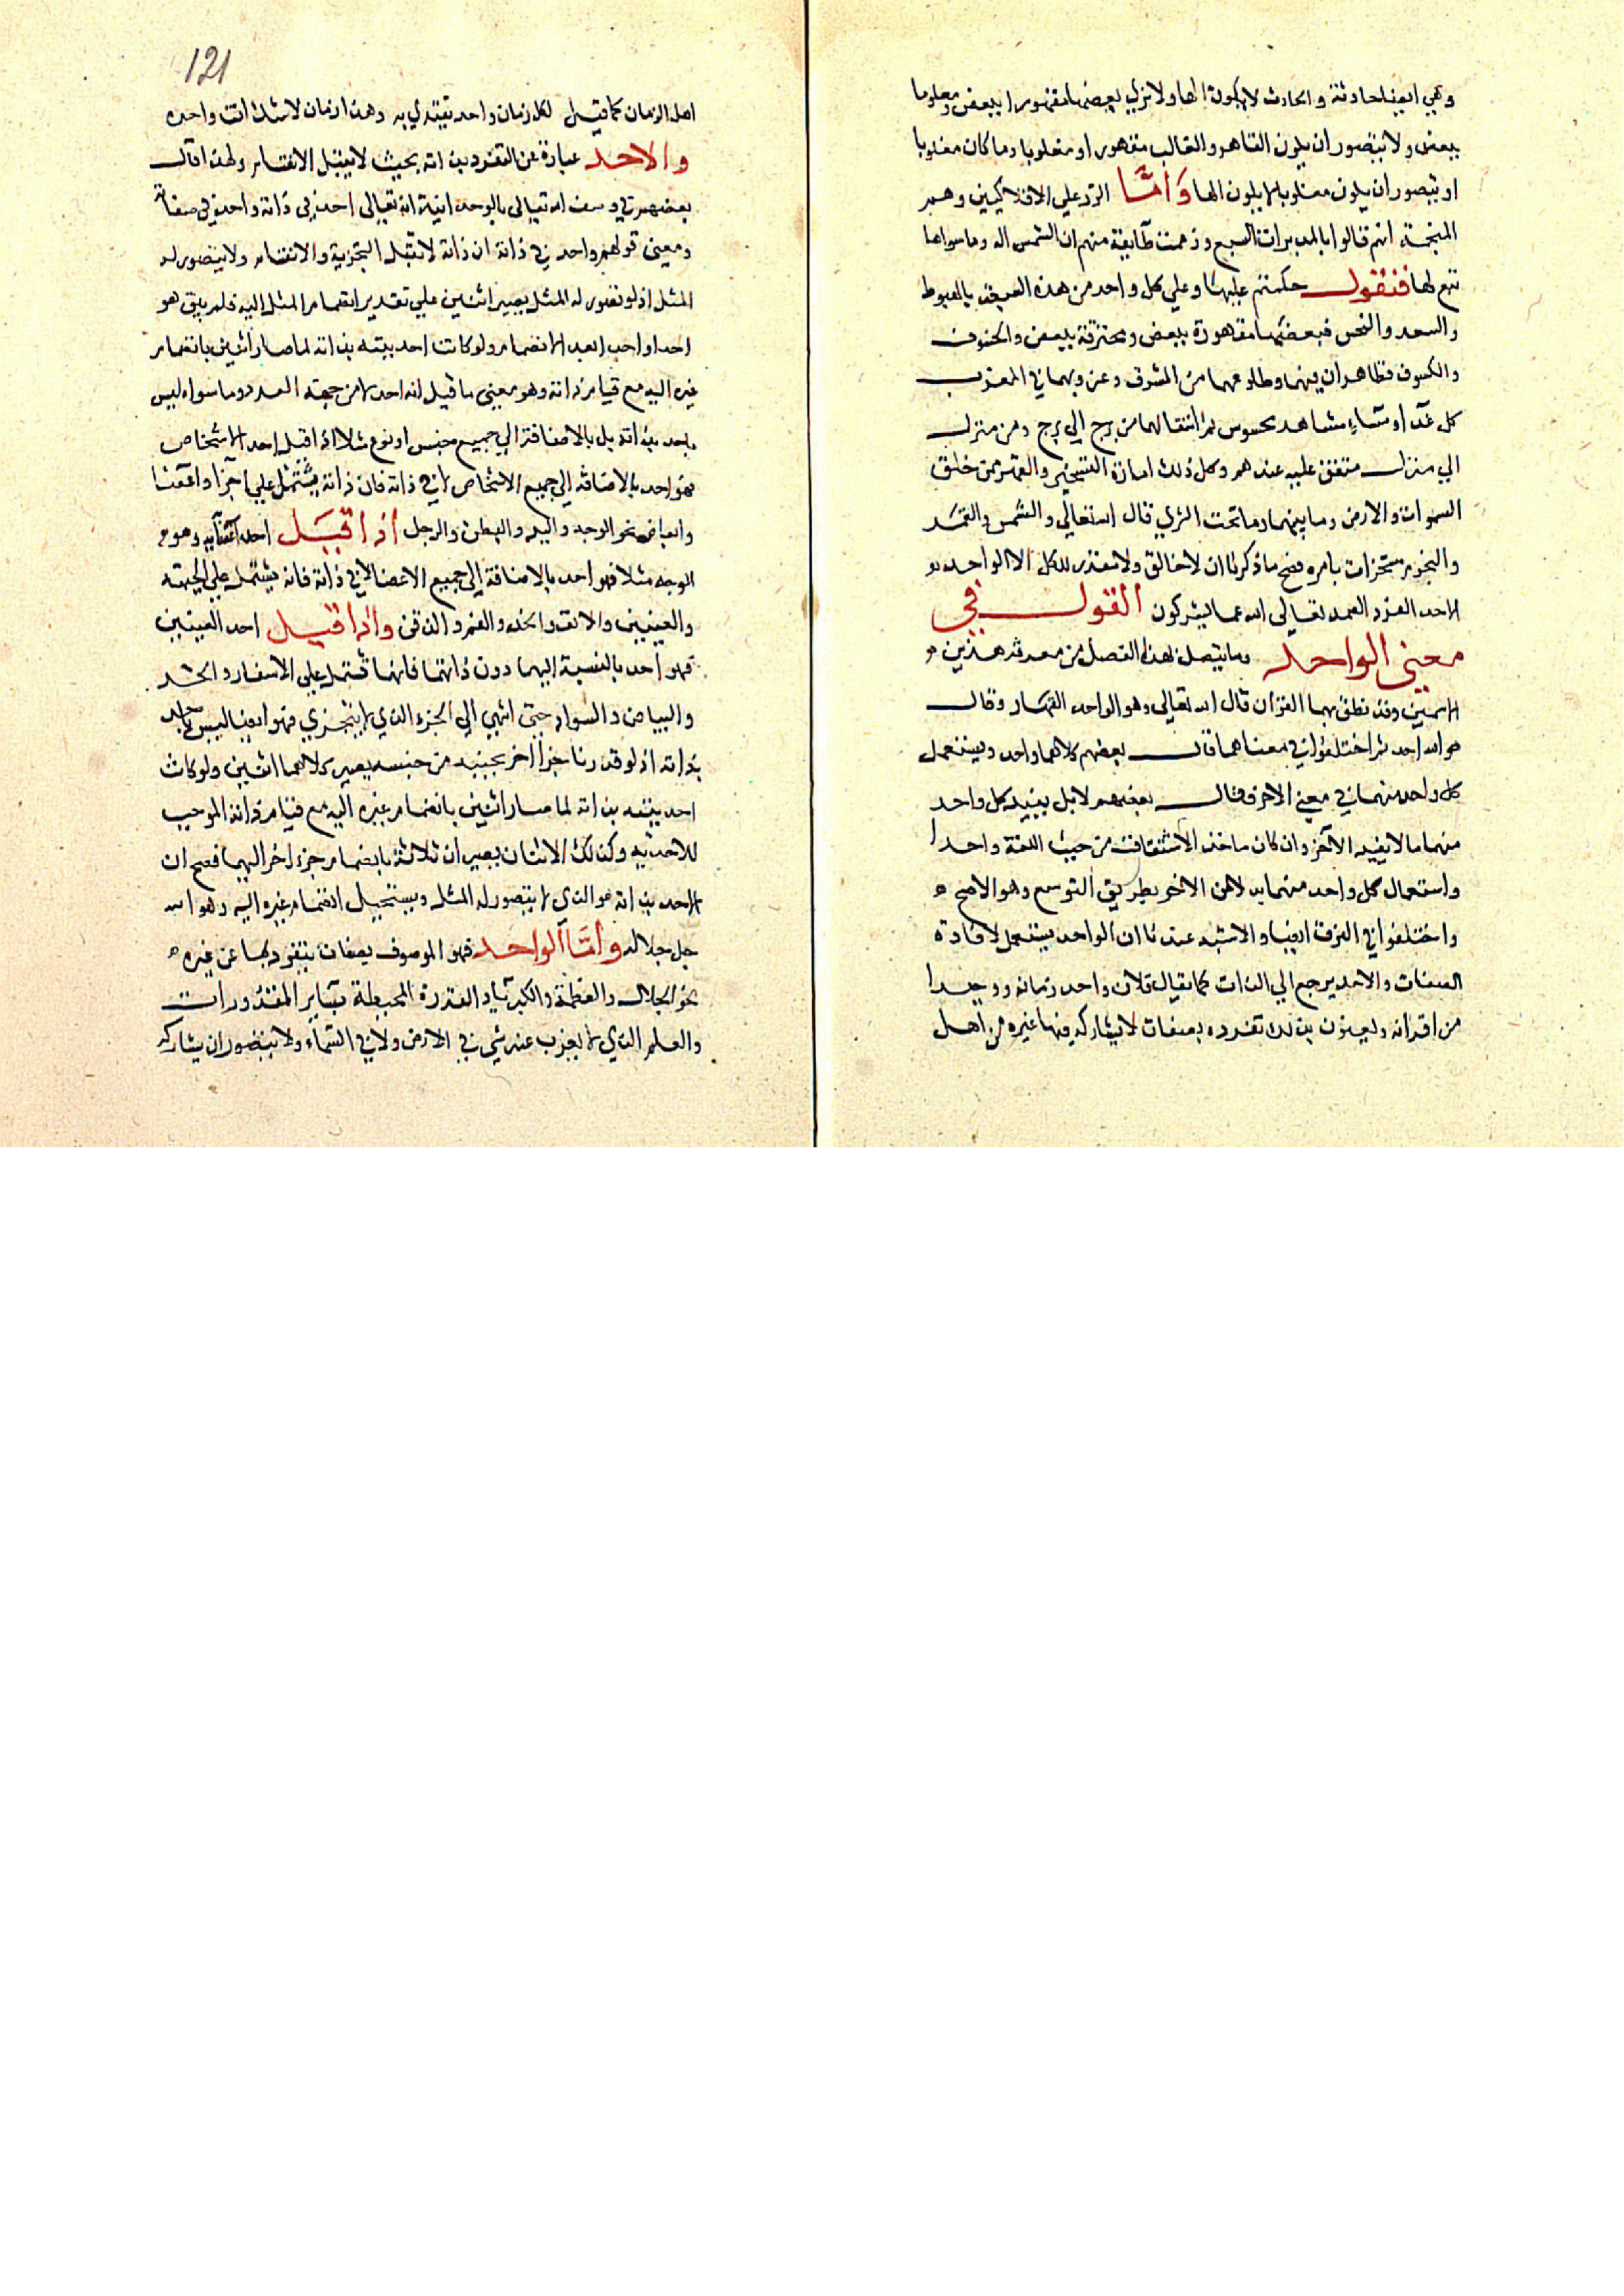 وهي ايضا حادثة والحادث لا يكون الها ولا نري بعضها مقهورا ببعض ومعلوما
ببعض ولا يتصور ان يكون القاهر والغالب مقهورا او مغلوبا وما كان مغلوبا
او يتصور ان يكون مغلوبا لا يكون الها وَأمَّا الرد علي الافلاكيين وهم
المنجمة انهم قالوا بالمدبرات السبع وزعمت طآيفة منهم ان الشمس اله وما سواها
تبع لها فنقول حكمتم عليها وعلي كل واحد من هذه السبعة بالهبوط
والسعد والنحس فبعضها مقهورة ببعض ومحترقة ببعض والخسوف
والكسوف ظاهران فيهما وطلوعهما من المشرق وغروبهما في المغرب
كل غداو مسآء مشاهد محسوس ثم انتقالهما من برج الي برج ومن منزل
الي منزل متفق عليه عندهم وكل ذلك امارة التسخير والقهر ممن خلق
السموات والارض وما بينهما وما تحت الثري قال الله تعالي والشمس والقمر
والنجوم مسخرات بامره فصح ما ذكرنا ان لا خالق ولا مقدر للكل الا الواحد
الاحد الفرد الصمد تعالي الله عما يشركون القول في
معني الواحد وما يتصل بهذا الفصل من معرفة هذين
الاسمين وقد نطق بهما القرآن قال الله تعالي وهو الواحد القهار وقال
هو الله احد ثم اختلفوا في معناهما قال بعضهم كلاهما واحد ويستعمل
كل واحد منهما في معني الاخر فقال بعضهم لا بل يفيد كل واحد
منهما ما لا يفيد الآخر وان كان ماخذ الاشتقاق من حيث اللغة واحدا
واستعمال كل واحد منهما بدلا من الاخر بطريق التوسع وهو الاصح
واختلفوا في الفرق ايضا والاشبه عندنا ان الواحد يستعمل لافادة
الصفات والاحد يرجع الي الذات كما يقال فلان واحد زمانه ووحيدا
من اقرانه ويعنون بذلك تفرده بصفات لا يشاركه فيها غيره من اهل
121
اهل الزمان كما قيل لكل زمان واحد يقتدي به وهذا زمان لا شك انت واحده
والاحد عبارة عن التفرد بذاته بحيث لا يقبل الانقسام ولهذا قال
بعضهم في وصف الله تعالي بالوحدانية انه تعالي احد في ذاته واحد في صفاته
ومعني قولهم واحد في ذاته ان ذاته لا تقبل التجزية والانقسام ولا يتصور له
المثل اذ لو تصور له المثل يصير اثنين علي تقدير انضمام المثل اليه فلم يبق هو
احدا واحد بعد الانضمام ولو كانت احديته بذاته لما صار اثنين بانضمام
غيره اليه مع قيام ذاته وهو معني ما قيل انه احد لا من جهة العدد وما سواه ليس
باحد بذاته بل بالاضافة الي جميع جنس او نوع مثلا اذا قيل احد الاشخاص
فهو احد بالاضافة الي جميع الاشخاص لا في ذاته فان ذاته يشتمل علي اجزا واعضا
وابعاض نحو الوجه واليد والبطن والرجل اذا قيل احد اعضآيه وهو
الوجه مثلا فهو احد بالاضافة الي جميع الاعضا لا في ذاته فانه يشتمل علي الجبهة
والعينين والانف والخد والفم والذقن واذا قيل احد العينين
فهو احد بالنسبة اليهما دون ذاتها فانها تشتمل علي الاشفار والحد
والبياض والسواد حتي انتهي الي الجزء الذي لا يتجزي فهو ايضا ليس باحد
بذاته اذ لو قدرنا جزا اخر بجنبه من جنسه يصير كلاهما اثنين ولو كانت
احديته بذاته لما صارا اثنين بانضمام غيره اليه مع قيام ذاته الموجب
للاحدية وكذلك الاثنان يصيران ثلاثة بانضمام جزء اخر اليهما فصح ان
الاحد بذاته هو الذي لا يتصور له المثل ويستحيل انضمام غيره اليه وهو الله
جل جلاله وأمَّا الواحد فهو الموصوف بصفات يتفرد بها عن غيره
نحو الجلال والعظمة والكبرياء والقدرة المحيطة بسآير المقدورات
والعلم الذي لا يعزب عنه شي في الارض ولا في السمآء ولا يتصور ان يشاركه